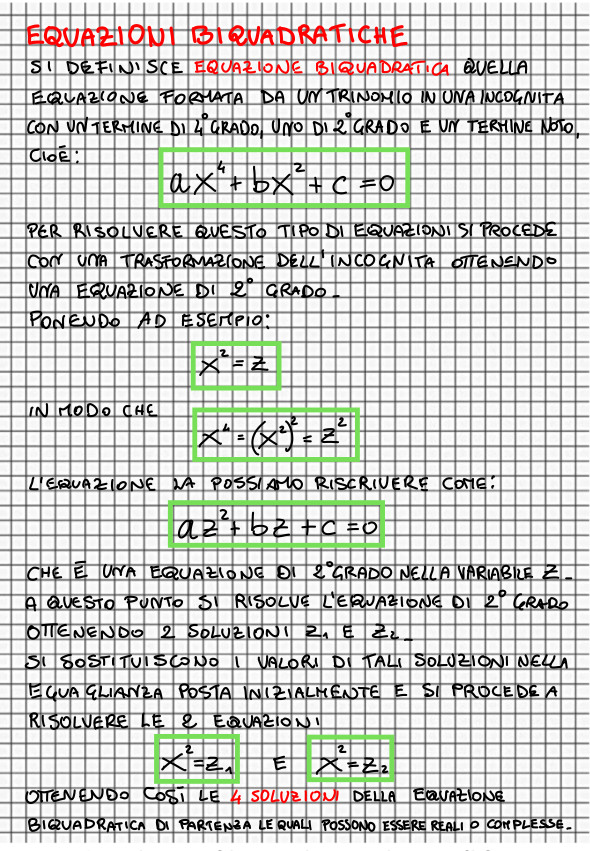 EQUAZIONI BIQUADRATICHE
SI DEFINISCE EQUAZIONE BIQUADRATICA QUELLA
EQUAZIONE FORMATA DA UN TRINOMIO IN UNA INCOGNITA
CON UN TERMINE DI 4° GRADO, UNO DI 2° GRADO E UN TERMINE NOTO,
CIOÈ:
ax⁴ + bx² + c = 0
PER RISOLVERE QUESTO TIPO DI EQUAZIONI SI PROCEDE
CON UNA TRASFORMAZIONE DELL'INCOGNITA OTTENENDO
UNA EQUAZIONE DI 2° GRADO.
PONENDO AD ESEMPIO:
x² = z
IN MODO CHE
x⁴ = (x²)² = z²
L'EQUAZIONE LA POSSIAMO RISCRIVERE COME:
az² + bz + c = 0
CHE È UNA EQUAZIONE DI 2° GRADO NELLA VARIABILE Z.
A QUESTO PUNTO SI RISOLVE L'EQUAZIONE DI 2° GRADO
OTTENENDO 2 SOLUZIONI Z₁ E Z₂.
SI SOSTITUISCONO I VALORI DI TALI SOLUZIONI NELLA
EGUAGLIANZA POSTA INIZIALMENTE E SI PROCEDE A
RISOLVERE LE 2 EQUAZIONI
x² = z₁ E x² = z₂
OTTENENDO COSÌ LE 4 SOLUZIONI DELLA EQUAZIONE
BIQUADRATICA DI PARTENZA LE QUALI POSSONO ESSERE REALI O COMPLESSE.